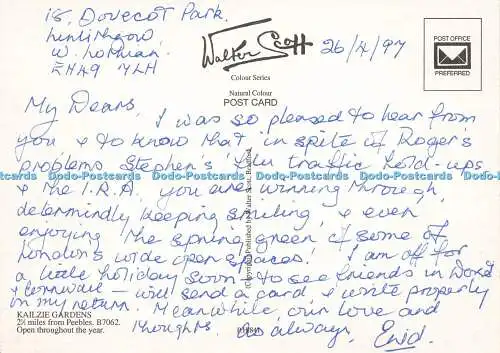 18, Dovecot Park.
Linlithgow
W. Lothian.
EH49 7LH
Walter Scott
26/4/97
Colour Series
Natural Colour
POST CARD
POST OFFICE
PREFERRED
My Dears, I was so pleased to hear from
you & to know that in spite of Roger's
problems Stephen's flu traffic hold-ups
& the I.R.A. you are winning through,
determindly keeping smiling, & even
enjoying the spring green of some of
London's wide open spaces! I am off for
a little holiday soon to see friends in Dorset
& Cornwall – will send a card & write properly
on my return. Meanwhile, our love and
thoughts as always, Enid.
KAILZIE GARDENS
2½ miles from Peebles. B7062.
Open throughout the year.
Copyright Published by Walter Scott, Bradford.
Dodo-Postcards Dodo-Postcards Dodo-Postcards Dodo-Postcards Dodo-Postcards